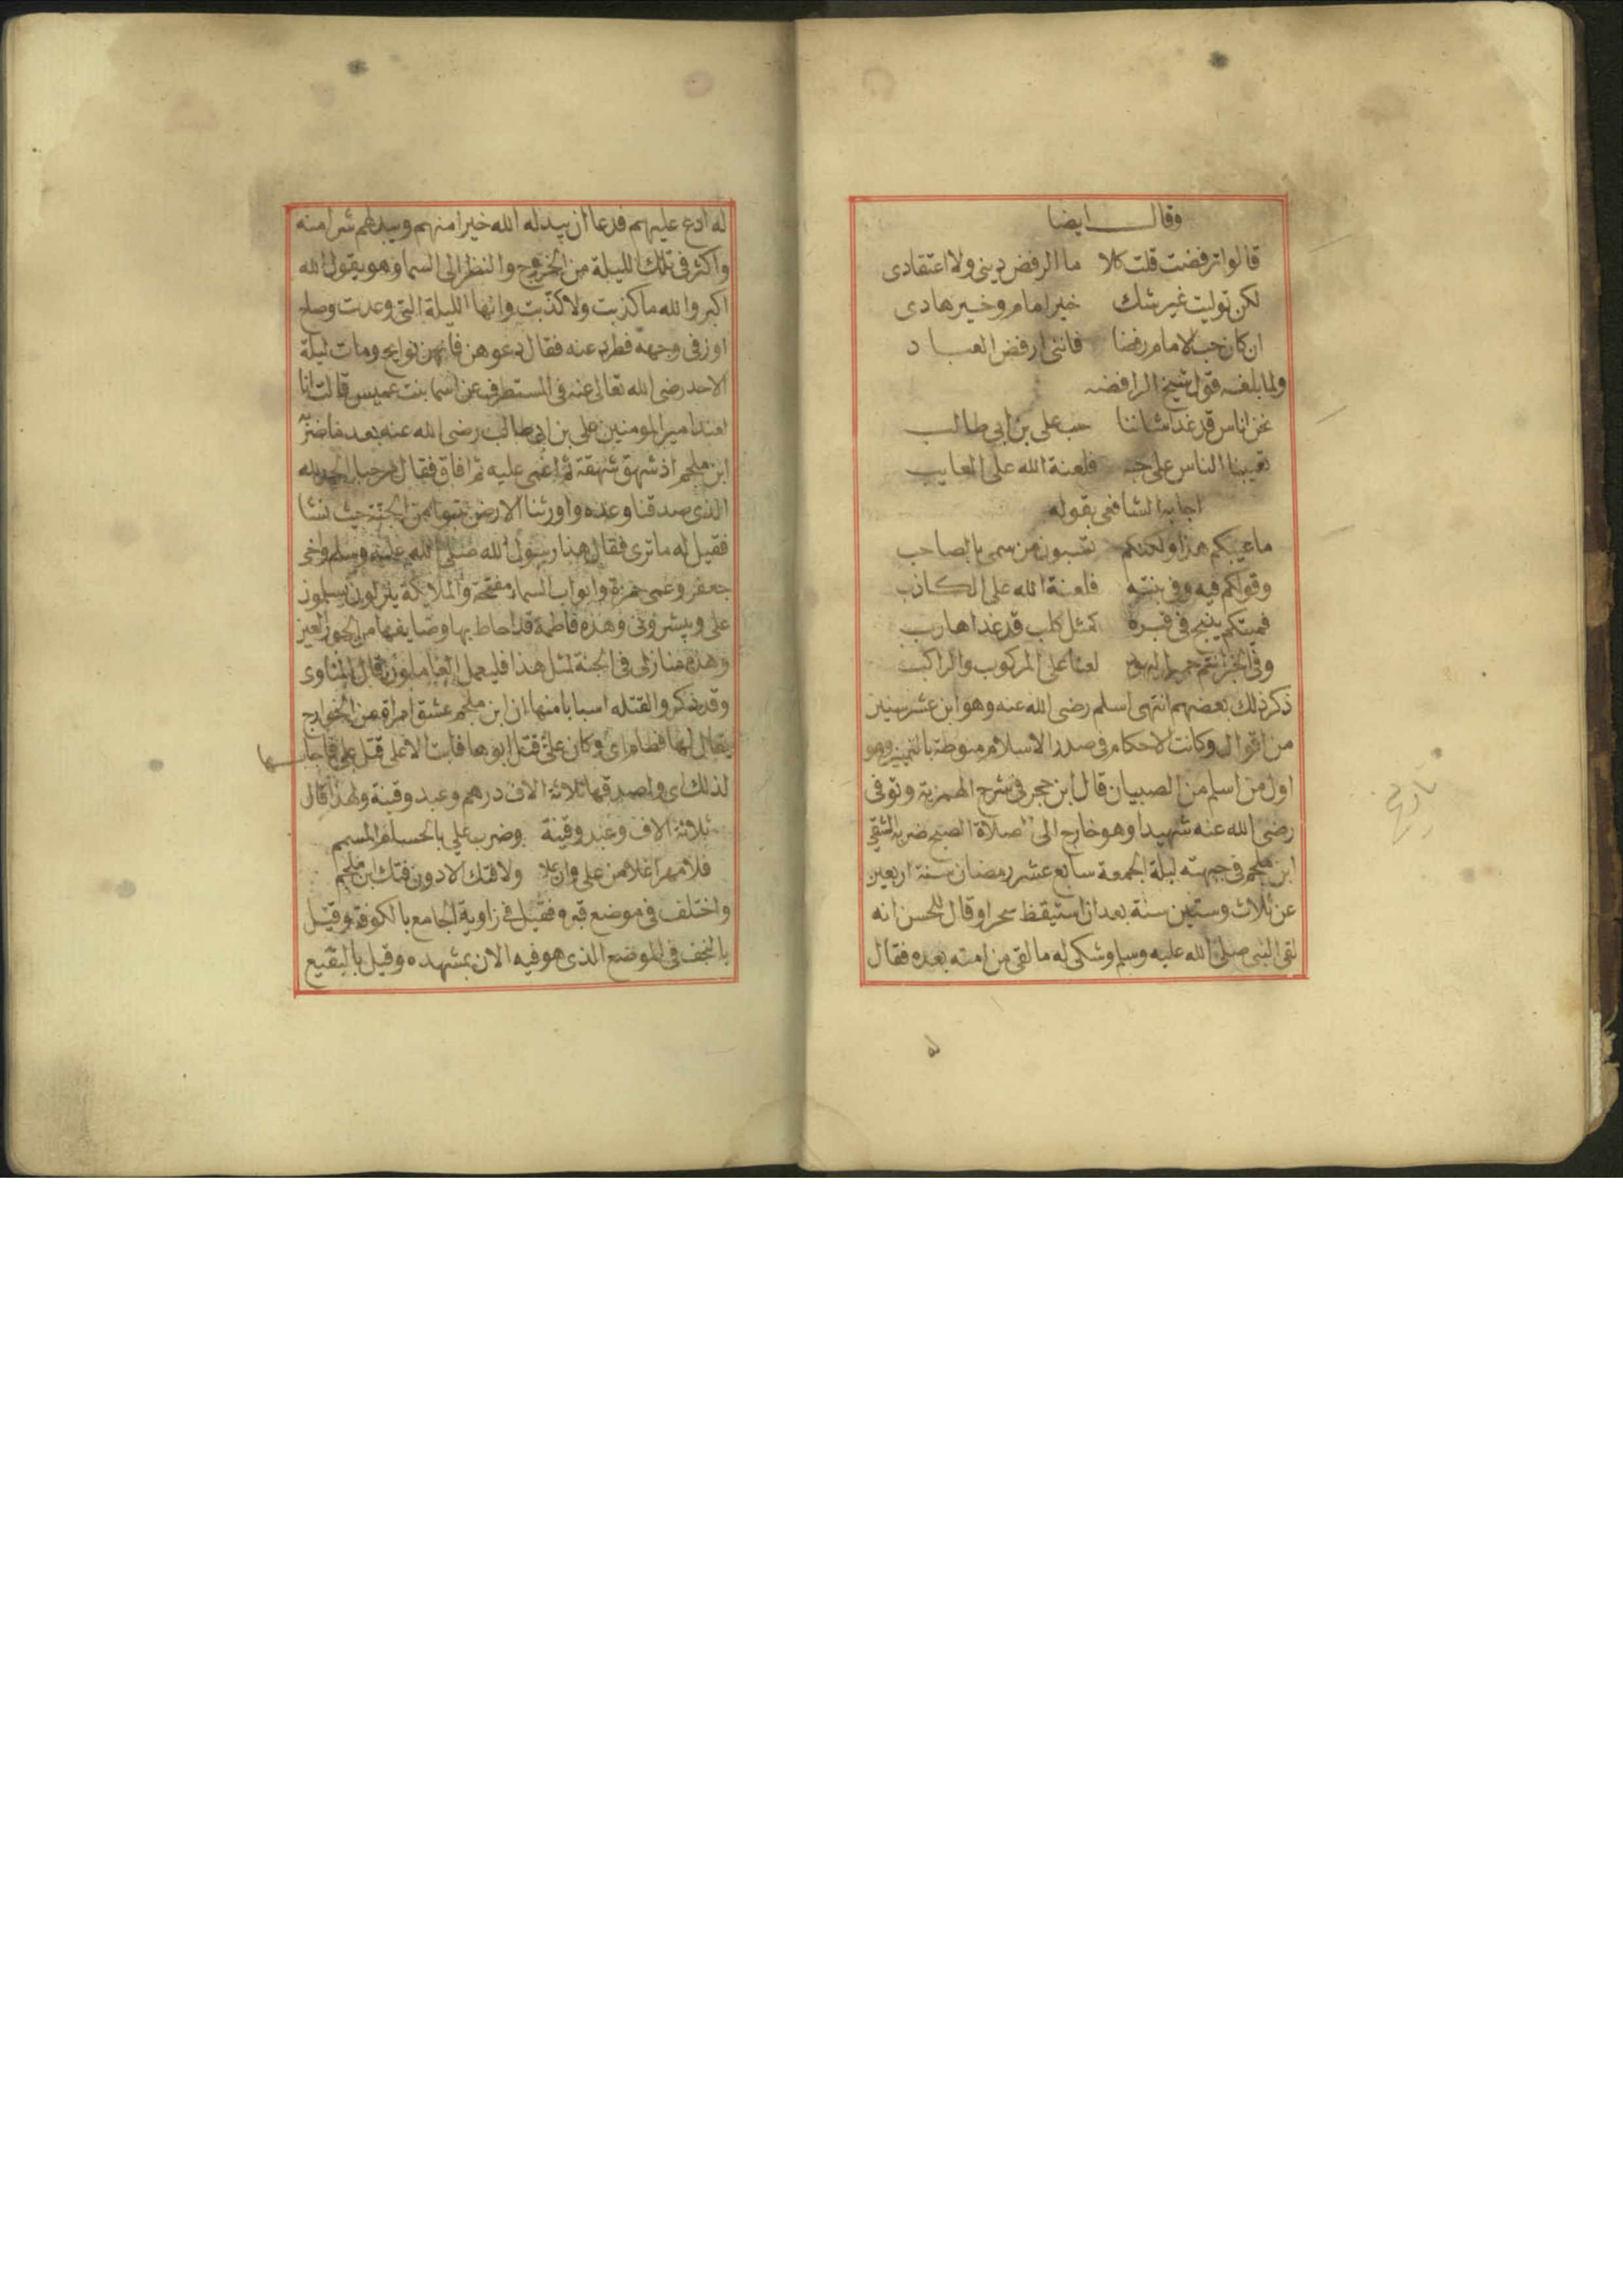 وقال ايضا
قالوا ترفضت قلت كلا ما الرفض ديني ولا اعتقادى
لكن توليت غير شك خير امام وخير هادى
ان كان حب الامام رفضا فانني ارفض العباد
ولما بلغه قول شيخ الرافضه
نحن اناس قد غدا شاننا حب على بن ابي طالب
تعيبنا الناس على حبه فلعنة الله على العايب
اجابه الشافعى بقوله
ما عيبكم هذا ولكنكم تسبون من سمى بالصاحب
وقولكم فيه وفي بنته فلعنة الله على الكاذب
فميتكم ينبح في قبره كمثل كلب قد غدا هارب
وفي انتم لعنا على المركوب والراكب
ذكر ذلك بعضهم انتهى اسلم رضى الله عنه وهو ابن عشر سنين
من اقوال وكانت الاحكام فى صدر الاسلام منوطة بالتمييز وهو
اول من اسلم من الصبيان قال ابن حجر فى شرح الهمزية وتوفى
رضى الله عنه شهيدا وهو خارج الى صلاة الصبح ضربه الشقي
ابن ملجم فى جبهته ليلة الجمعة سابع عشر رمضان سنة اربعين
عن ثلاث وستين سنة بعد ان استيقظ سحرا وقال للحسن انه
لقى النبى صلى الله عليه وسلم وشكى له ما لقى من امته بعده فقال
تاريخ
له ادع عليهم فدعا ان يبدله الله خيرا منهم ويبدلهم شرا منه
واكثر فى تلك الليلة من الخروج والنظر الى السما وهو يقول الله
اكبر والله ما كذبت ولا كذبت وانها الليلة التى وعدت وصاح
اوز فى وجهه فطرد عنه فقال دعوهن فانهن نوايح ومات ليلة
الاحد رضى الله تعالى عنه فى المستطرف عن اسما بنت عميس قالت انا
لعند امير المومنين على بن ابى طالب رضى الله عنه بعد ما ضربه
ابن ملجم اذ شهق شهقة ثم اغمى عليه ثم افاق فقال مرحبا الحمد لله
الذى صدقنا وعده واورثنا الارض نتبوا من الجنة حيث نشا
فقيل له ما ترى فقال هذا رسول الله صلى الله عليه وسلم واخى
جعفر وعمى حمزة وابواب السما مفتحة والملايكة ينزلون يسلمون
على ويبشرونى وهذه فاطمة قد احاط بها وصايفها من الحور العين
وهذه منازلى فى الجنة لمثل هذا فليعمل العاملون قال المناوى
وقد ذكروا لقتله اسبابا منها ان ابن ملجم عشق امراة من الخوارج
يقال لها قطام اى وكان على قتل ابوها فابت الا على قتل على فاجابها
لذلك اى واصدقها ثلاثة الاف درهم وعبد وقينة ولهذا قال
ثلاثة الاف وعبد وقينة وضرب علي بالحسام المسمم
فلا مهرا غلا من على وان غلا ولا فتك الا دون فتك ابن ملجم
واختلف فى موضع قبره فقيل فى زاوية الجامع بالكوفة وقيل
بالنجف فى الموضع الذى هو فيه الان بمشهده وقيل بالبقيع